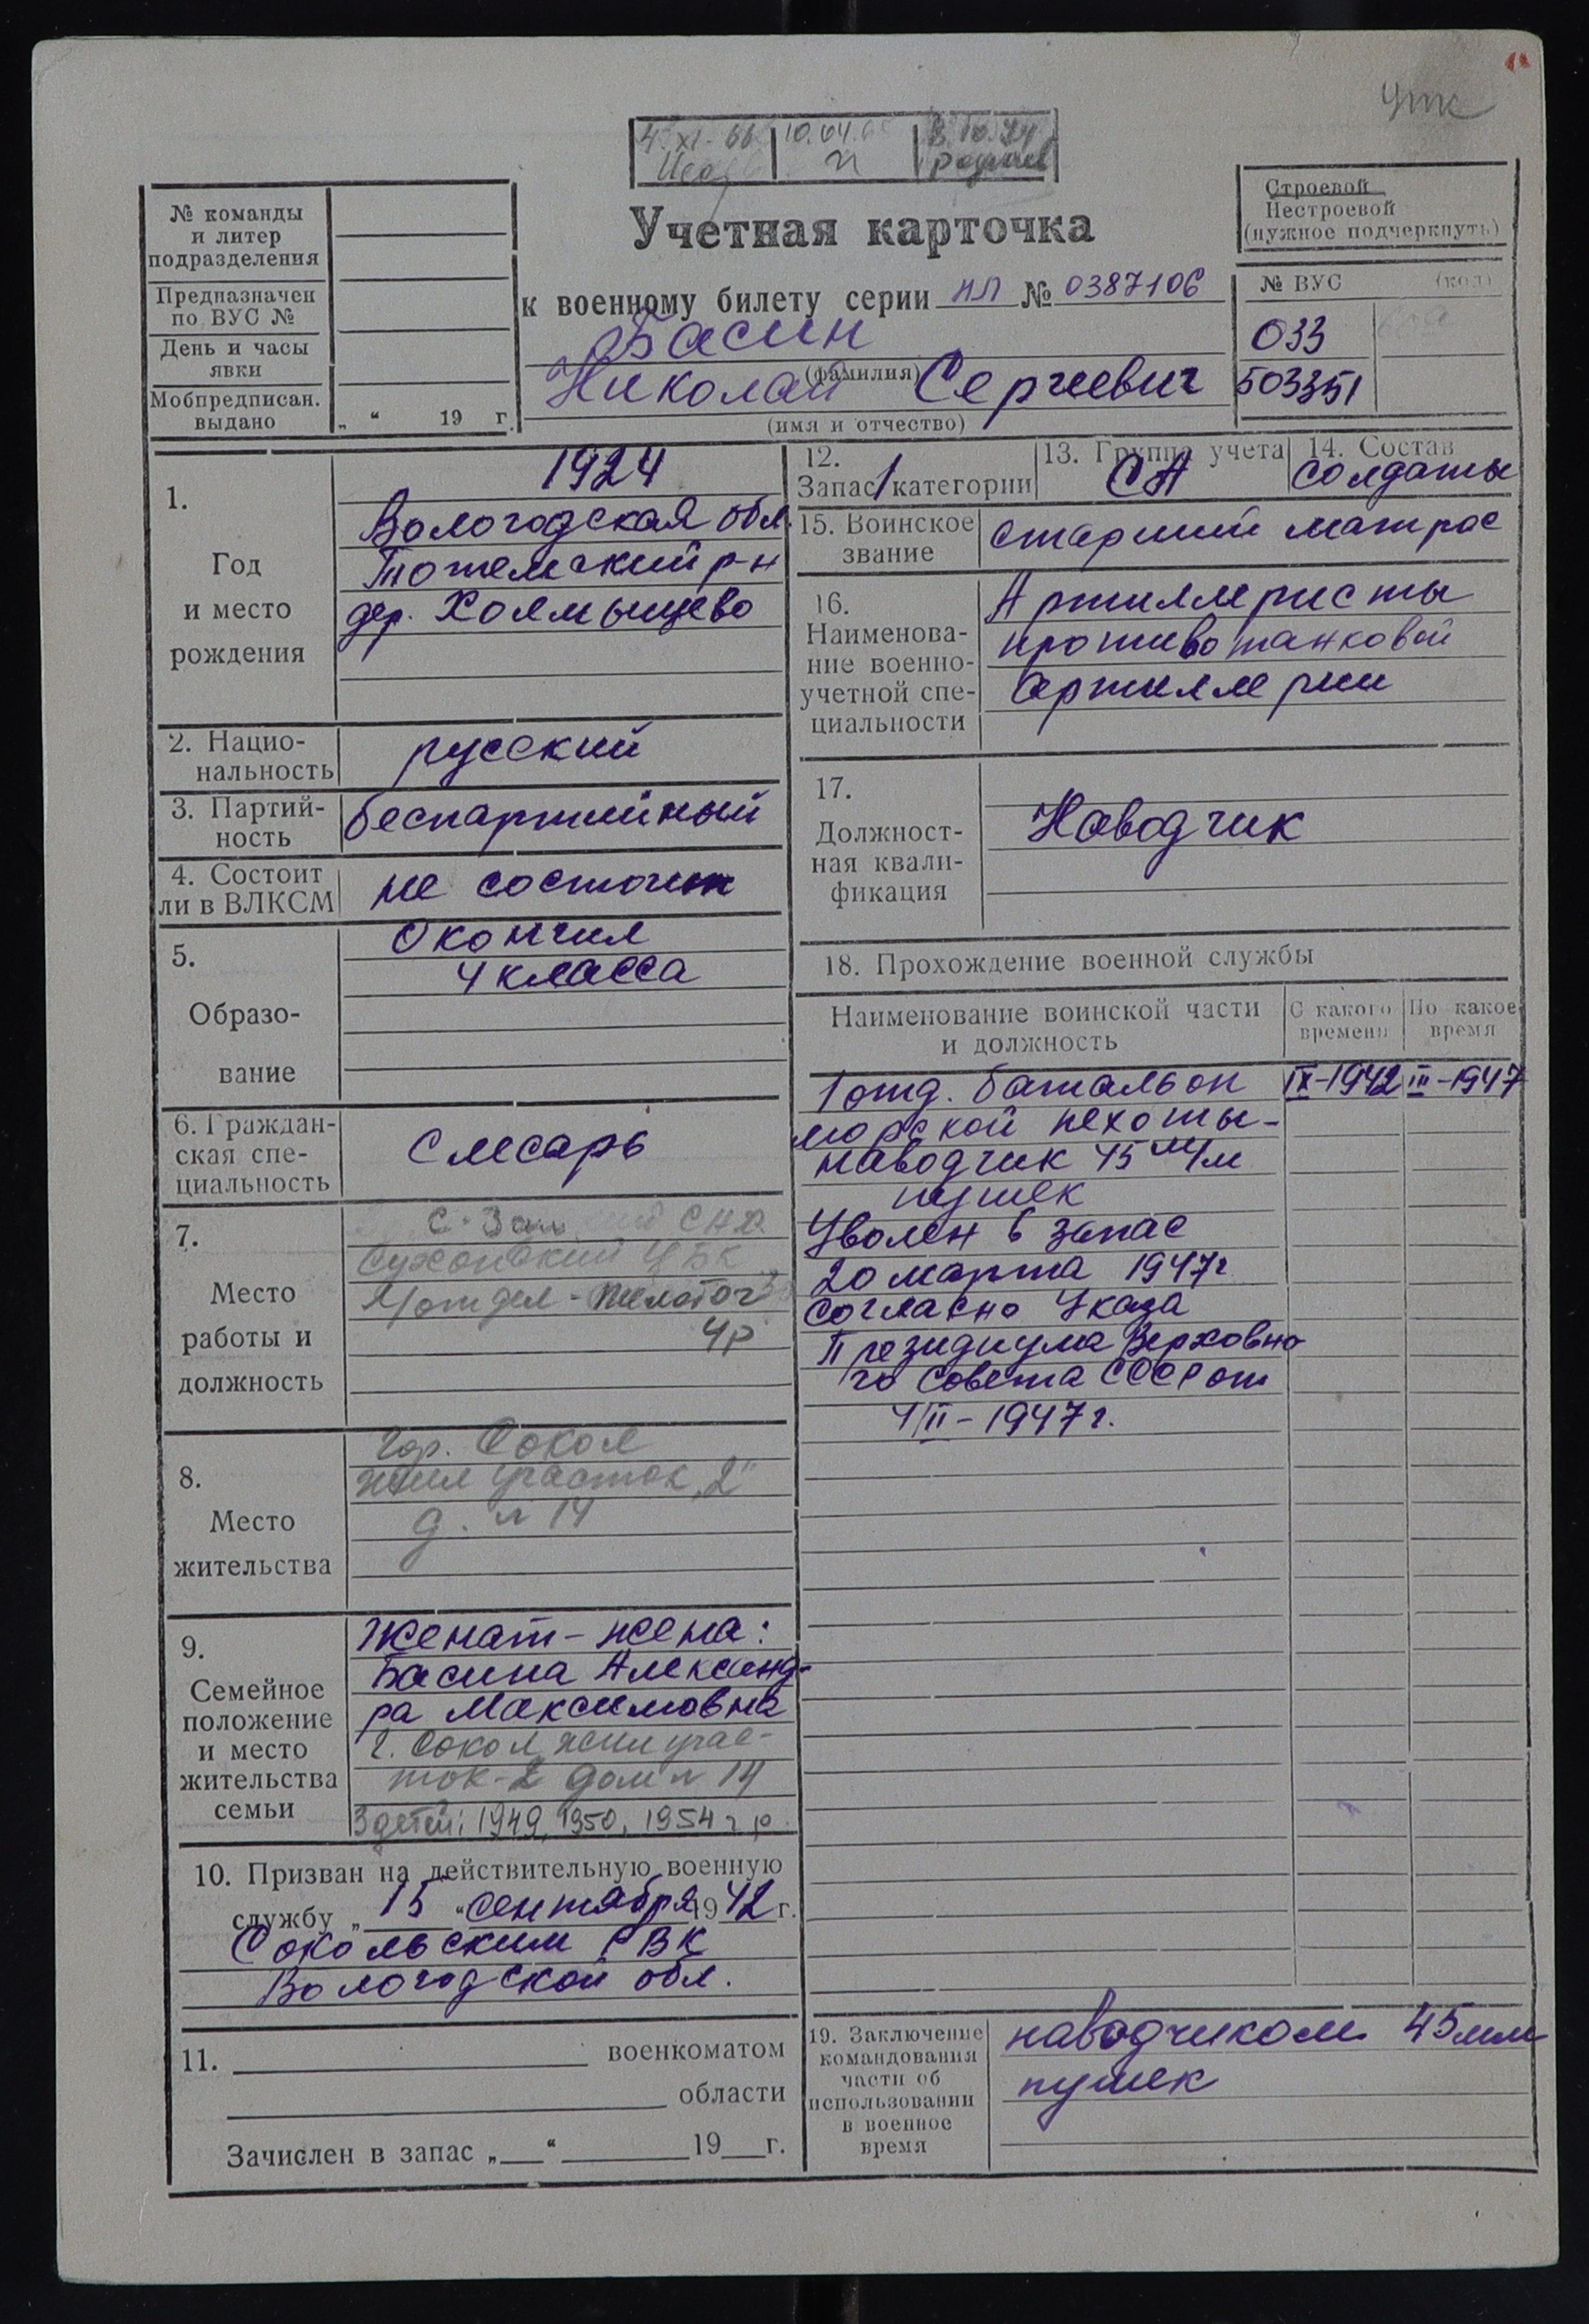 4.XI-66
10.04.6
№ команды
и литер
подразделения
Предназначен
по ВУС №
День и часы
явки
Мобпредписан.
выдано
„ “ 19 г.
Учетная карточка
к военному билету серии НЛ № 0387106
Басин
(фамилия)
Николай Сергиевич
(имя и отчество)
Строевой
Нестроевой
(нужное подчеркнуть)
№ ВУС (код)
033
503351
1.
Год
и место
рождения
1924
Вологодская обл.
Тотемский р-н
дер. Холмышево
2. Нацио-
нальность
русский
3. Партий-
ность
беспартийный
4. Состоит
ли в ВЛКСМ
не состоит
5.
Образо-
вание
Окончил
4 класса
6. Граждан-
ская спе-
циальность
Слесарь
7.
Место
работы и
должность
С-Зап СНХ
Сухонский ЦБК
отдел -
4р
8.
Место
жительства
гор. Сокол
жил участок „2“
д. № 14
9.
Семейное
положение
и место
жительства
семьи
Женат - жена:
Басина Александ-
ра Максимовна
г. Сокол жил учас-
ток-2 дом № 14
3 детей: 1949, 1950, 1954 г.р.
10. Призван на действительную военную
службу „15“ сентября 1942 г.
Сокольским РВК
Вологодской обл.
11. военкоматом
области
Зачислен в запас „ “ 19 г.
12.
Запас 1 категории
13. Группа учета
СА
14. Состав
солдаты
15. Воинское
звание
старший матрос
16.
Наименова-
ние военно-
учетной спе-
циальности
Артиллеристы
противотанковой
артиллерии
17.
Должност-
ная квали-
фикация
Наводчик
18. Прохождение военной службы
Наименование воинской части
и должность
С какого
времени
По какое
время
1 отд. батальон IX-1942 III-1947
морской пехоты-
наводчик 45 м/м
пушек
Уволен в запас
20 марта 1947г
согласно Указа
Президиума Верховно
го Совета СССР от
4/II-1947г.
19. Заключение
командования
части об
использовании
в военное
время
наводчиком 45 мм
пушек